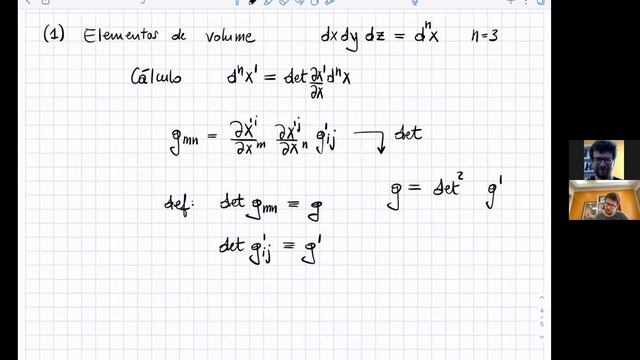 (1) Elementos de volume dx dy dz = dⁿx n=3
Cálculo dⁿx' = det ∂x'/∂x dⁿx
gₘₙ = ∂x'ⁱ/∂xᵐ ∂x'ʲ/∂xⁿ g'ᵢⱼ det
def: det gₘₙ ≡ g g = det² g'
det g'ᵢⱼ ≡ g'
4
5